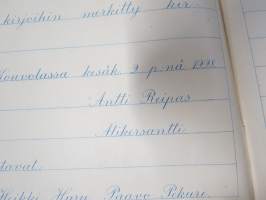 kirjoihin merkitty kir
Kouvolassa kesäk. 2 p:nä 19
Antti Reipas
Alikersantti
tavat.
Heikki Haru Paavo Pekuri.